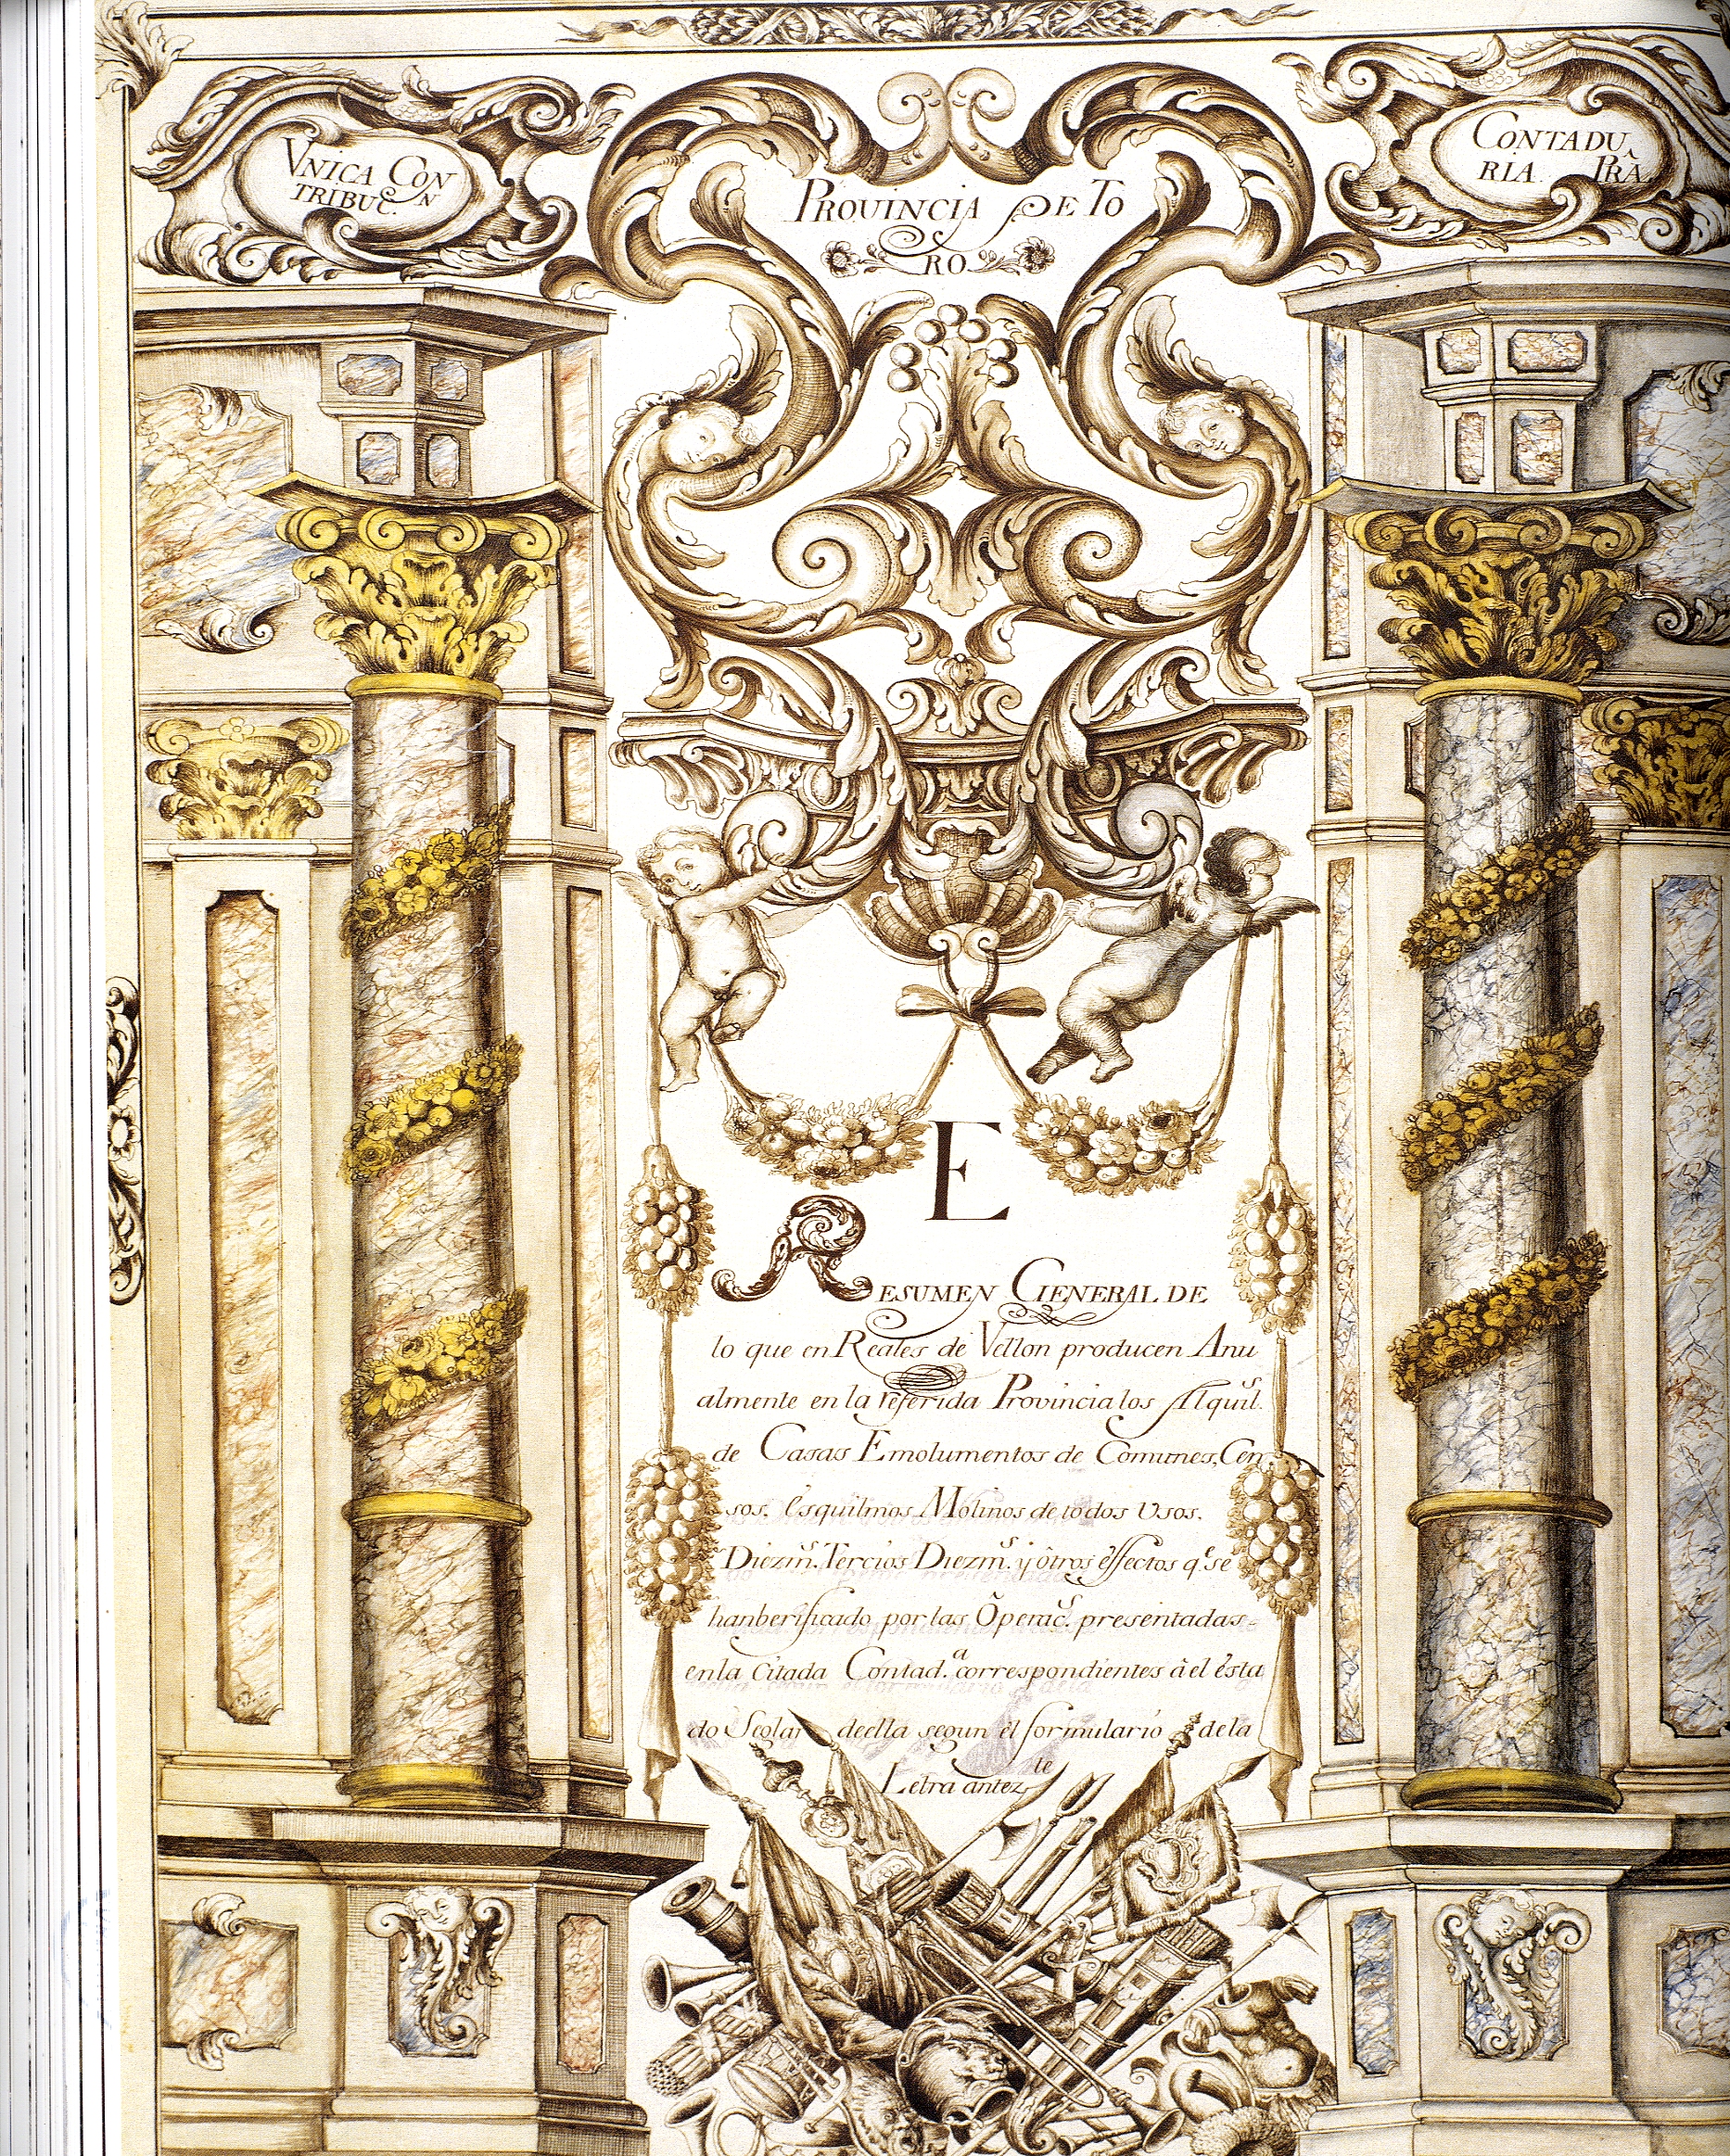 VNICA CON
TRIBUC.N
CONTADU
RIA PRA.
PROUINCIA DE TO
RO
E
RESUMEN GENERAL DE
lo que en Reales de Vellon producen Anu
almente en la referida Provincia los Alquil.s
de Casas Emolumentos de Comunes, Cen
sos, esquilmos Molinos de todos Usos,
Diezm.s Tercios Diezm.s y ôtros êffectos q.e se
han berificado por las Ôperac.s presentadas
en la Citada Contad.a correspondientes â el êsta
do Seglar deella segun el formulario de la
Letra antez.te